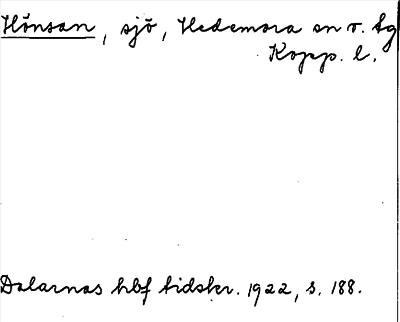 Hönsan, sjö, Hedemora sn v. tg
Kopp. l.
Dalarnas hbf tidskr. 1922, s. 188.